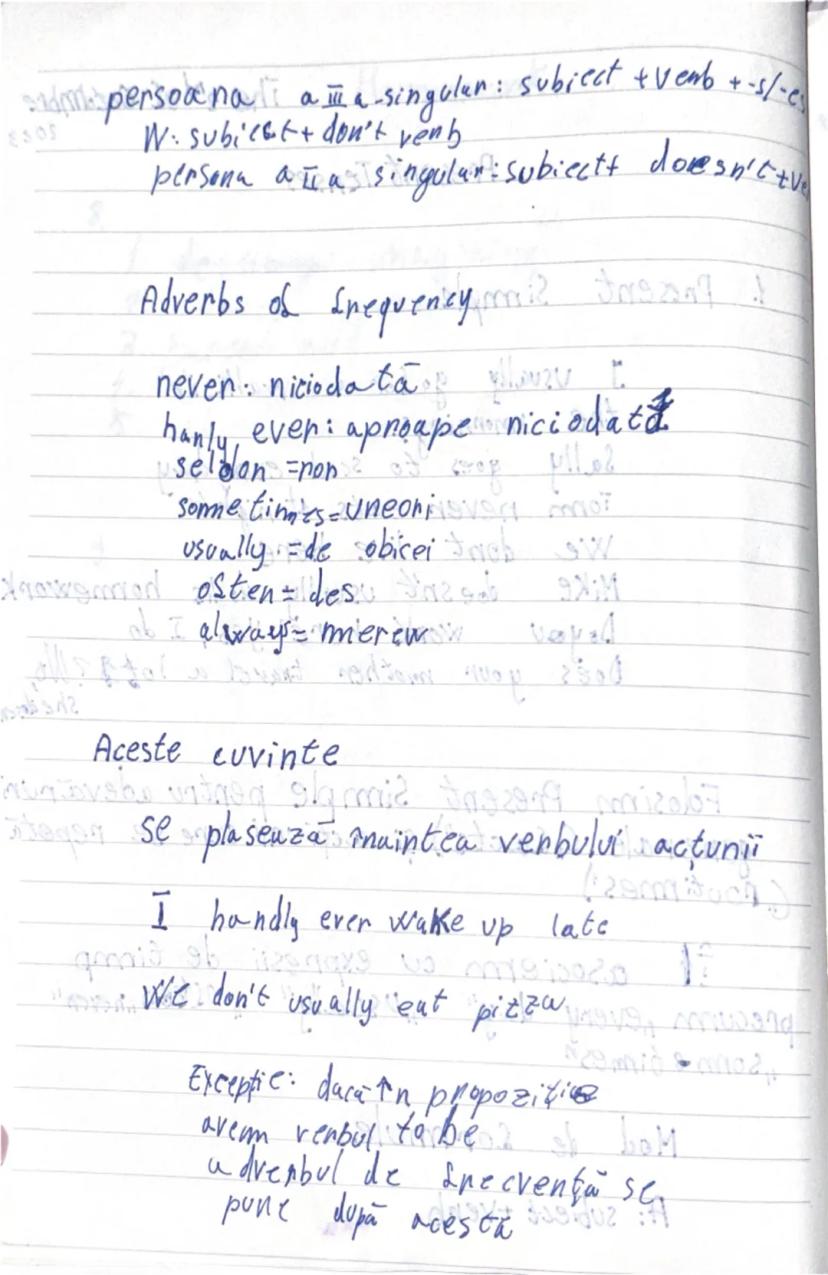 persoana a III a singular: subiect + verb + -s/-es
N: subiect + don't verb
persona a II a singular: subiect + doesn't + ve
Adverbs of frequency
never: niciodată
harly ever: aproape niciodată
seldon = rar
sometimes = uneori
usually = de obicei
often = des
always = mereu
Aceste cuvinte
se plasează înaintea verbului acțunii
I hardly ever wake up late
We don't usually eat pizza
Excepție: dacă în propoziție
avem verbul to be
adverbul de frecvență se
pune după acesta